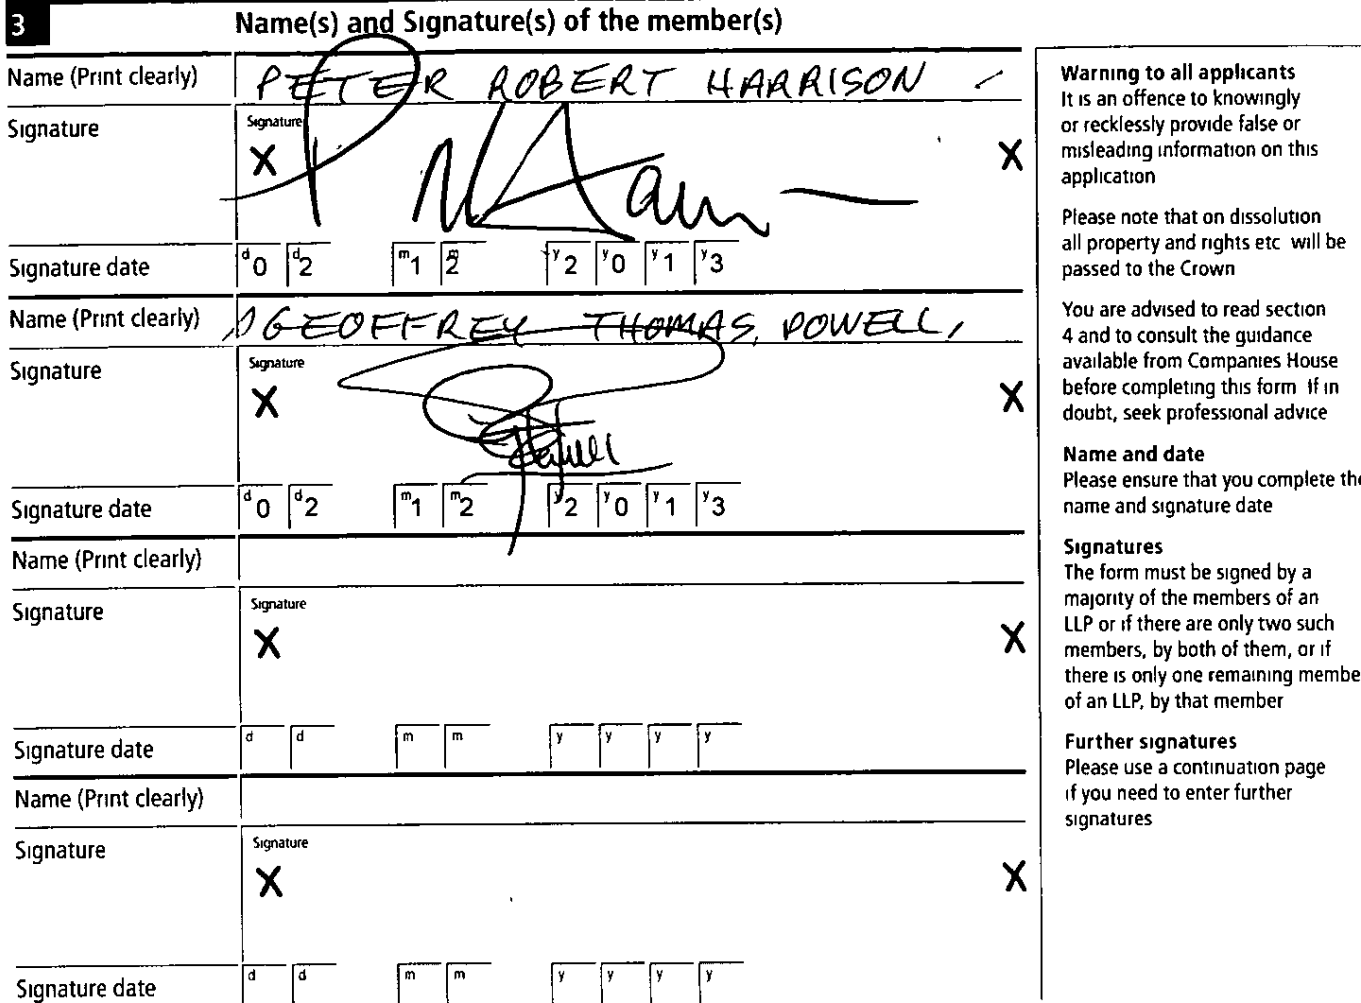 3 Name(s) and Signature(s) of the member(s)
Name (Print clearly) PETER ROBERT HARRISON
Signature Signature
X X
Signature date d0 d2 m1 m2 y2 y0 y1 y3
Name (Print clearly) GEOFFREY THOMAS POWELL
Signature Signature
X X
Signature date d0 d2 m1 m2 y2 y0 y1 y3
Name (Print clearly)
Signature Signature
X X
Signature date d d m m y y y y
Name (Print clearly)
Signature Signature
X X
Signature date d d m m y y y y
Warning to all applicants
It is an offence to knowingly
or recklessly provide false or
misleading information on this
application
Please note that on dissolution
all property and rights etc will be
passed to the Crown
You are advised to read section
4 and to consult the guidance
available from Companies House
before completing this form If in
doubt, seek professional advice
Name and date
Please ensure that you complete the
name and signature date
Signatures
The form must be signed by a
majority of the members of an
LLP or if there are only two such
members, by both of them, or if
there is only one remaining membe
of an LLP, by that member
Further signatures
Please use a continuation page
if you need to enter further
signatures